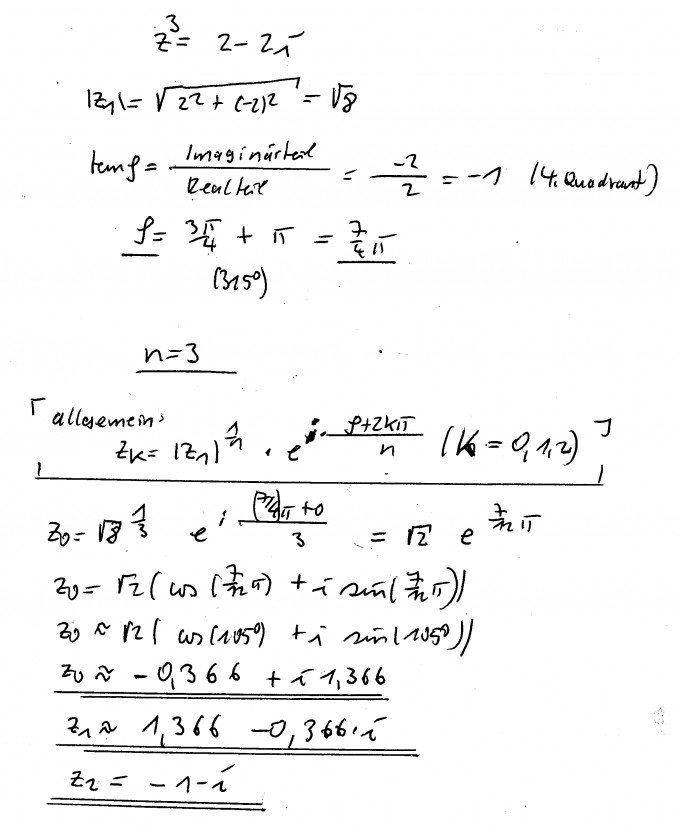 z³ = 2 - 2i
|z₁| = √(2² + (-2)²) = √8
tan φ = Imaginärteil / Realteil = -2/2 = -1 (4. Quadrant)
φ = 3π/4 + π = 7/4 π
(315°)
n = 3
allgemein:
z_K = |z₁|^(1/n) · e^(i · (φ+2kπ)/n) (K = 0,1,2)
z₀ = √8^(1/3) e^(i ((7/4)π + 0)/3) = √2 e^(7/12 π)
z₀ = √2 ( cos (7/12 π) + i sin (7/12 π))
z₀ ≈ √2 ( cos (105°) + i sin (105°))
z₀ ≈ - 0,366 + i 1,366
z₁ ≈ 1,366 - 0,366·i
z₂ = - 1 - i